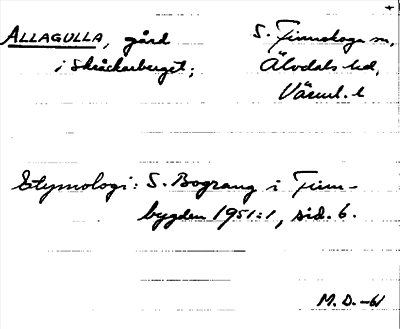 ALLAGULLA, gård S. Finnskoga sn,
i Skråckarberget; Älvdals hd,
Värml. l
Etymologi: S. Bograng i Finn-
bygden 1951:1, sid. 6.
M. D. -61